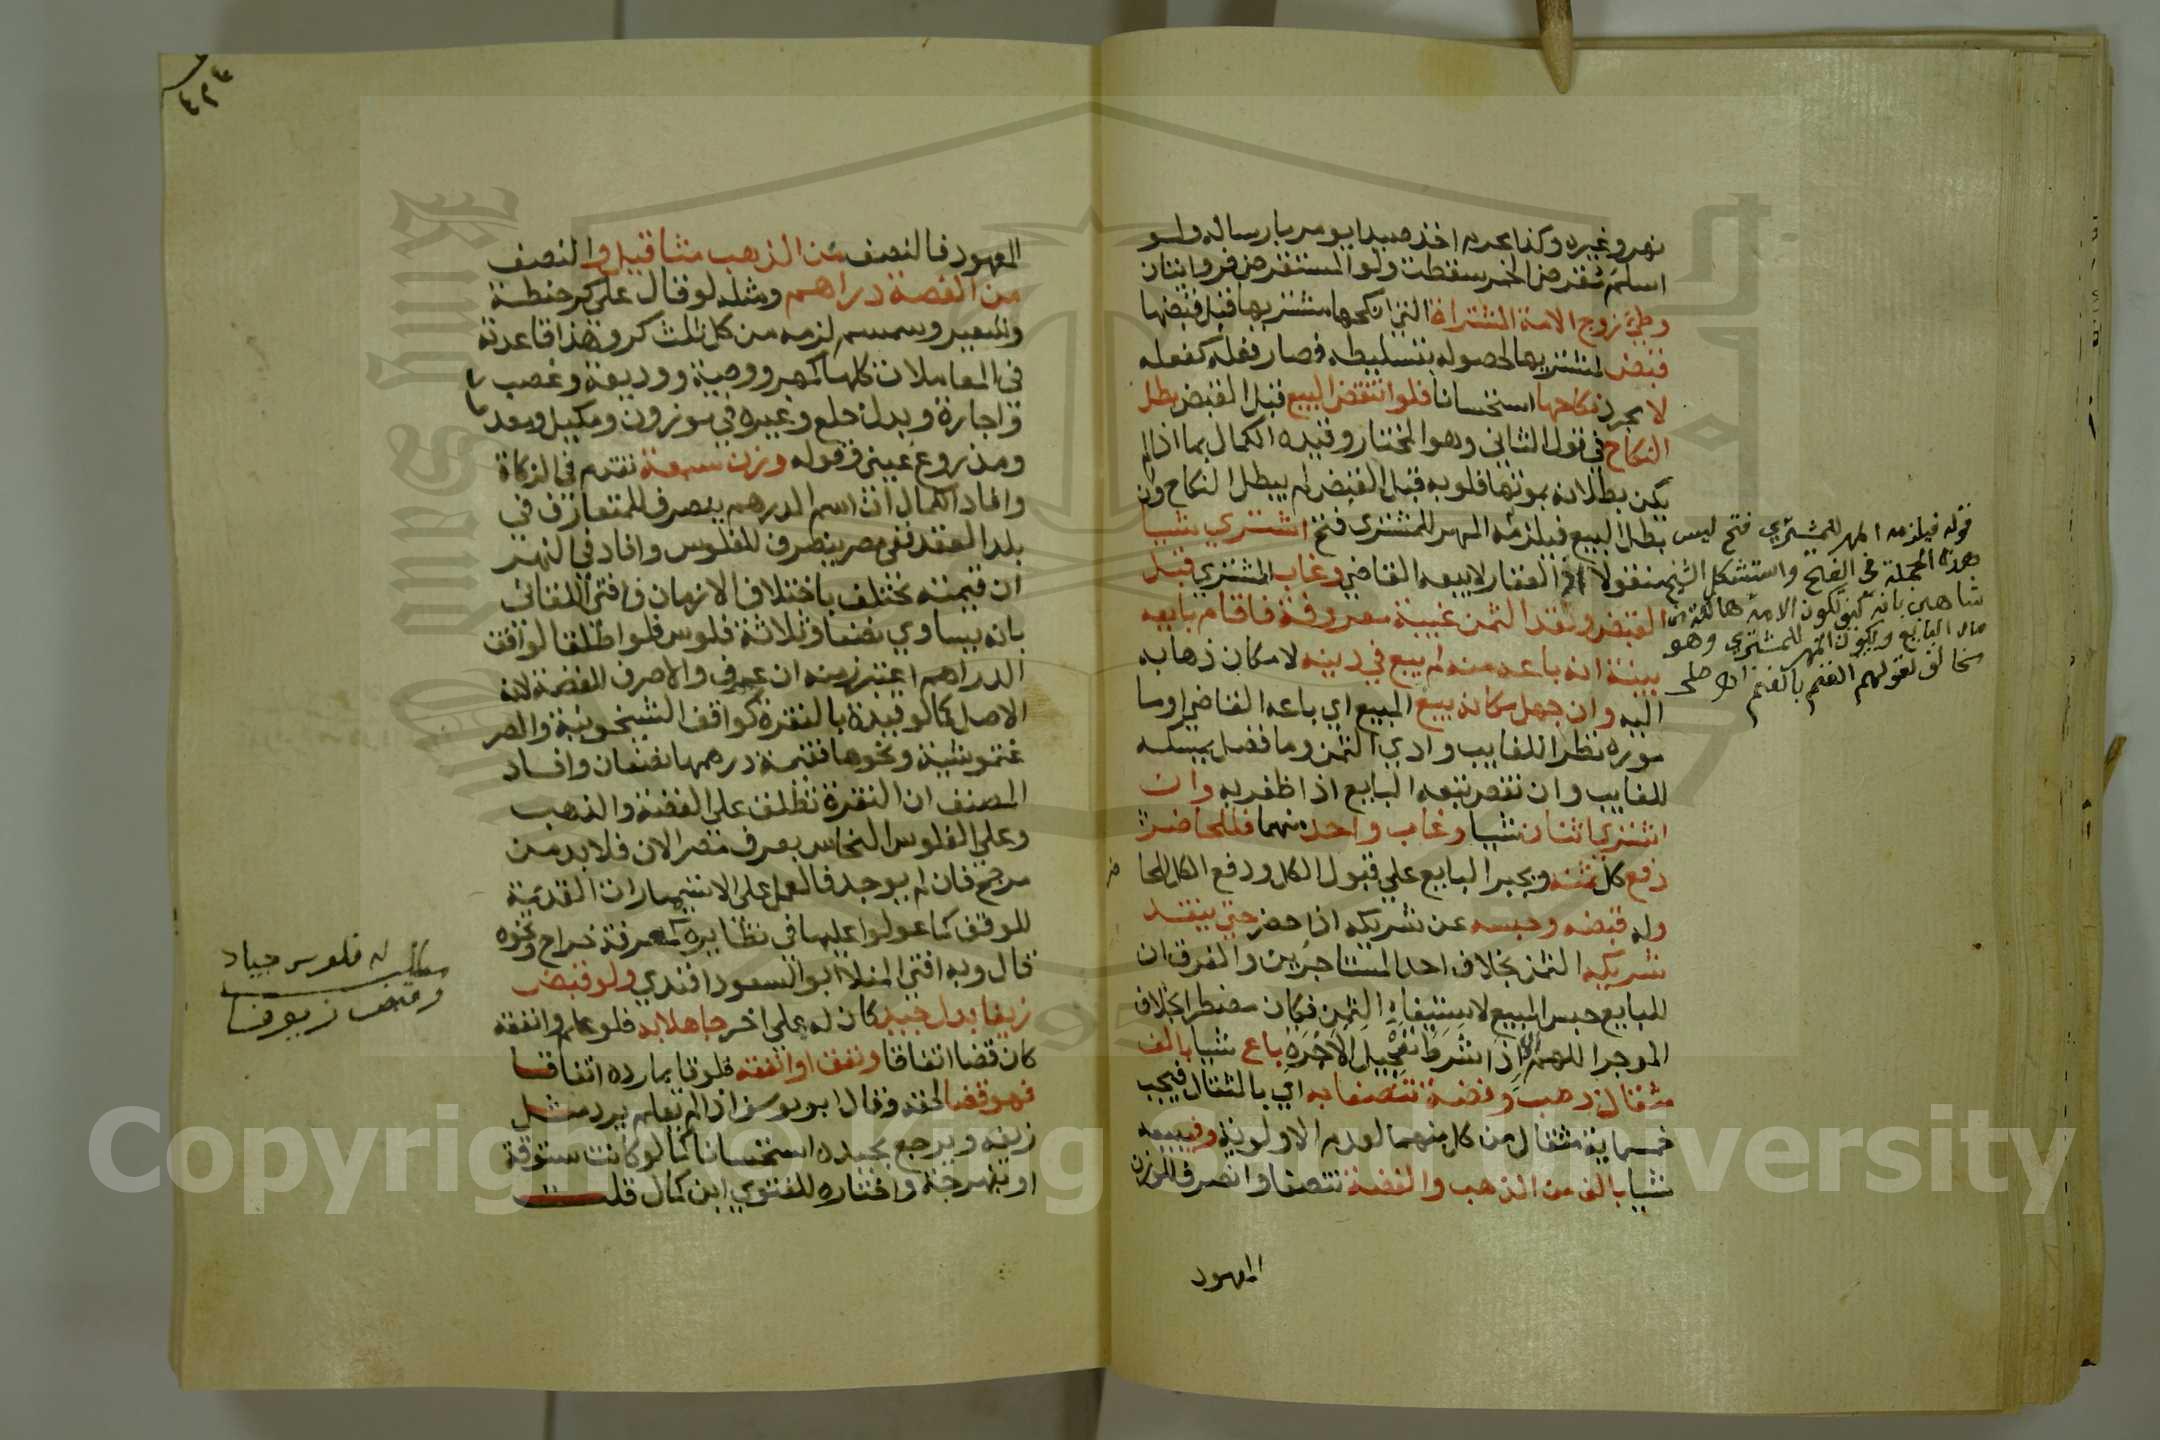 نهر وغيره وكذا محرم اخذ صيدا يومر بارساله ولو
اسلم مقرض الخمر سقطت ولو المستقرض فروايتان
وطئ زوج الامة المشتراة التي انكحها مشتريها قبل قبضها
قبض لمشتريها لحصوله بتسليطه فصار فعله كفعله
لا مجرد نكاحها استحسانا فلو انتقض البيع قبل القبض بطل
النكاح في قول الثاني وهو المختار وقيده الكمال بما اذا لم
يكن بطلانه بموتها فلو به قبل القبض لم يبطل النكاح وان
بطل البيع فيلزمه المهر للمشتري فتح اشتري شيا
منقولا اذ العقار لا يبيعه القاضي وغاب المشتري قبل
القبض ونقد الثمن غيبة معروفة فاقام بايعه
بينة انه باعه منه لم يبع في دينه لامكان ذهابه
اليه وان جهل مكانه بيع المبيع اي باعه القاضي او ما
موره نظرا للغايب وادي الثمن وما فضل يمسكه
للغايب وان نقص تبعه البايع اذا ظفر به وان
اشتري اثنان شيا وغاب واحد منهما فللحاضر
دفع كل ثمنه ويجبر البايع علي قبول الكل ودفع الكل للحا
وله قبضه وحبسه عن شريكه اذا حضر حتي ينقد
شريكه الثمن بخلاف احد المستاجرين والفرق ان
للبايع حبس المبيع لاستيفاء الثمن فكان مضطرا بخلاف
الموجر اللهم الا اذا شرط تعجيل الاجرة باع شيا بالف
مثقال ذهب وفضة تنصفا به اي بالمثقال فيجب
خمسماية مثقال من كل منهما لعدم الاولوية وفي بيعه
شيا بالف من الذهب والفضة تنصفا وانصرف للوزن
المعهود
قوله فيلزمه المهر للمشتري فتح ليس
هذه الجملة في الفتح واستشكل الشيخ
شاهين بانه كيف تكون الامة هالكة من
مال البايع ويكون المهر للمشتري وهو
مخالف لقولهم الغنم بالغنم اه حلبي
المعهود فالنصف من الذهب مثاقيل والنصف
من الفضة دراهم ومثله لو قال علي كر حنطة
وشعير وسمسم لزمه من كل ثلث كر وهذا قاعدة
في المعاملات كلها كمهر ووصية ووديعة وغصب
واجارة وبدل خلع وغيره في موزون ومكيل ومعد
ومذروع عيني وقوله وزن سبعة تقدم في الزكاة
وافاد الكمال ان اسم الدرهم ينصرف للمتعارف في
بلد العقد ففي مصر ينصرف للفلوس وافاد في النهر
ان قيمته تختلف باختلاف الازمان وافتي اللقاني
بانه يساوي نصفا وثلاثة فلوس فلو اطلق الواقف
الدراهم اعتبر زمنه ان عرف والا صرف للفضة لانه
الاصل كما لو قيده بالنقرة كواقف الشيخونية والصر
غتمشية ونحوها فقيمة درهمها نصفان وافاد
المصنف ان النقرة تطلق علي الفضة والذهب
وعلي الفلوس النحاس بعرف مصر الان فلا بد من
مرجح فان لم يوجد فالعمل علي الاستيمارات القديمة
للوقف كما عولوا عليها في نظايره كمعرفة خراج ونحوه
قال وبه افتي المنلا ابو السعود افندي ولو قبض
زيفا بدل جيد كان له علي اخر جاهلا به فلو علم وانفقه
كان قضا اتفاقا ونفق او انفقه فلو قايما رده اتفاقا
فهو قضا لحقه وقال ابو يوسف اذا لم يعلم يرد مثل
زيفه ويرجع بجيده استحسانا كما لو كانت ستوقة
او نبهرجة واختاره للفتوي ابن كمال قلت
مطلب له فلوس جياد
وقبض زيوفا
Copyright © King Saud University